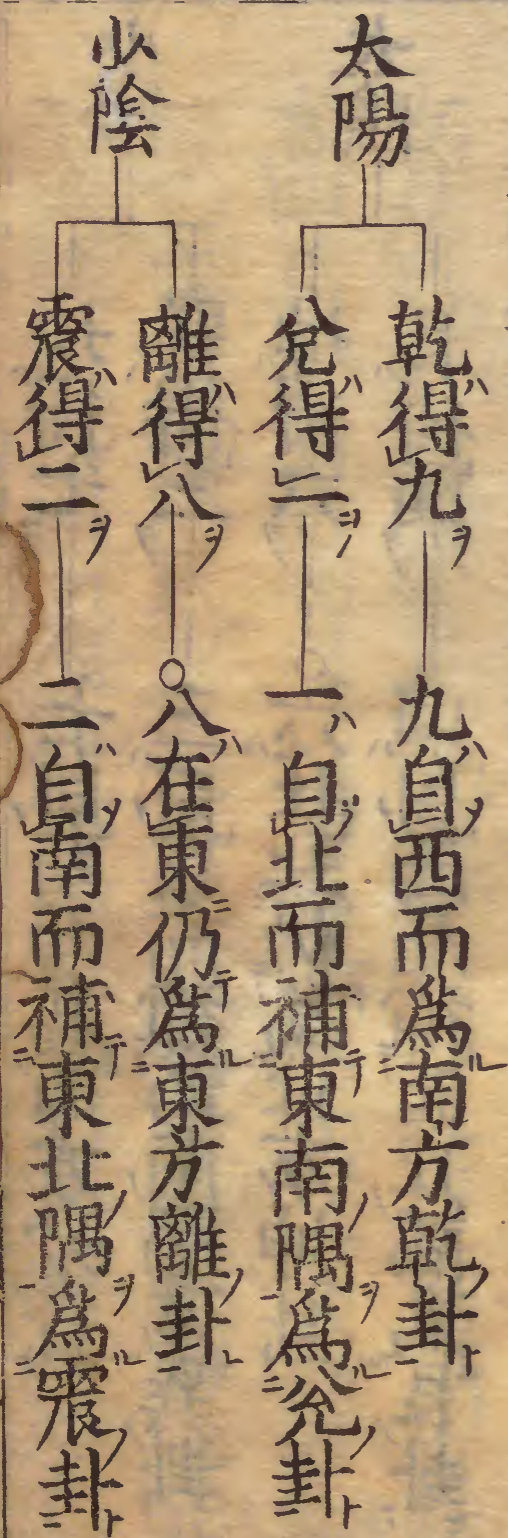 太陽
乾得九 九自西而爲南方乾卦
兌得一 一自北而補東南隅爲兌卦
少陰
離得八 〇八在東仍爲東方離卦
震得二 二自南而補東北隅爲震卦